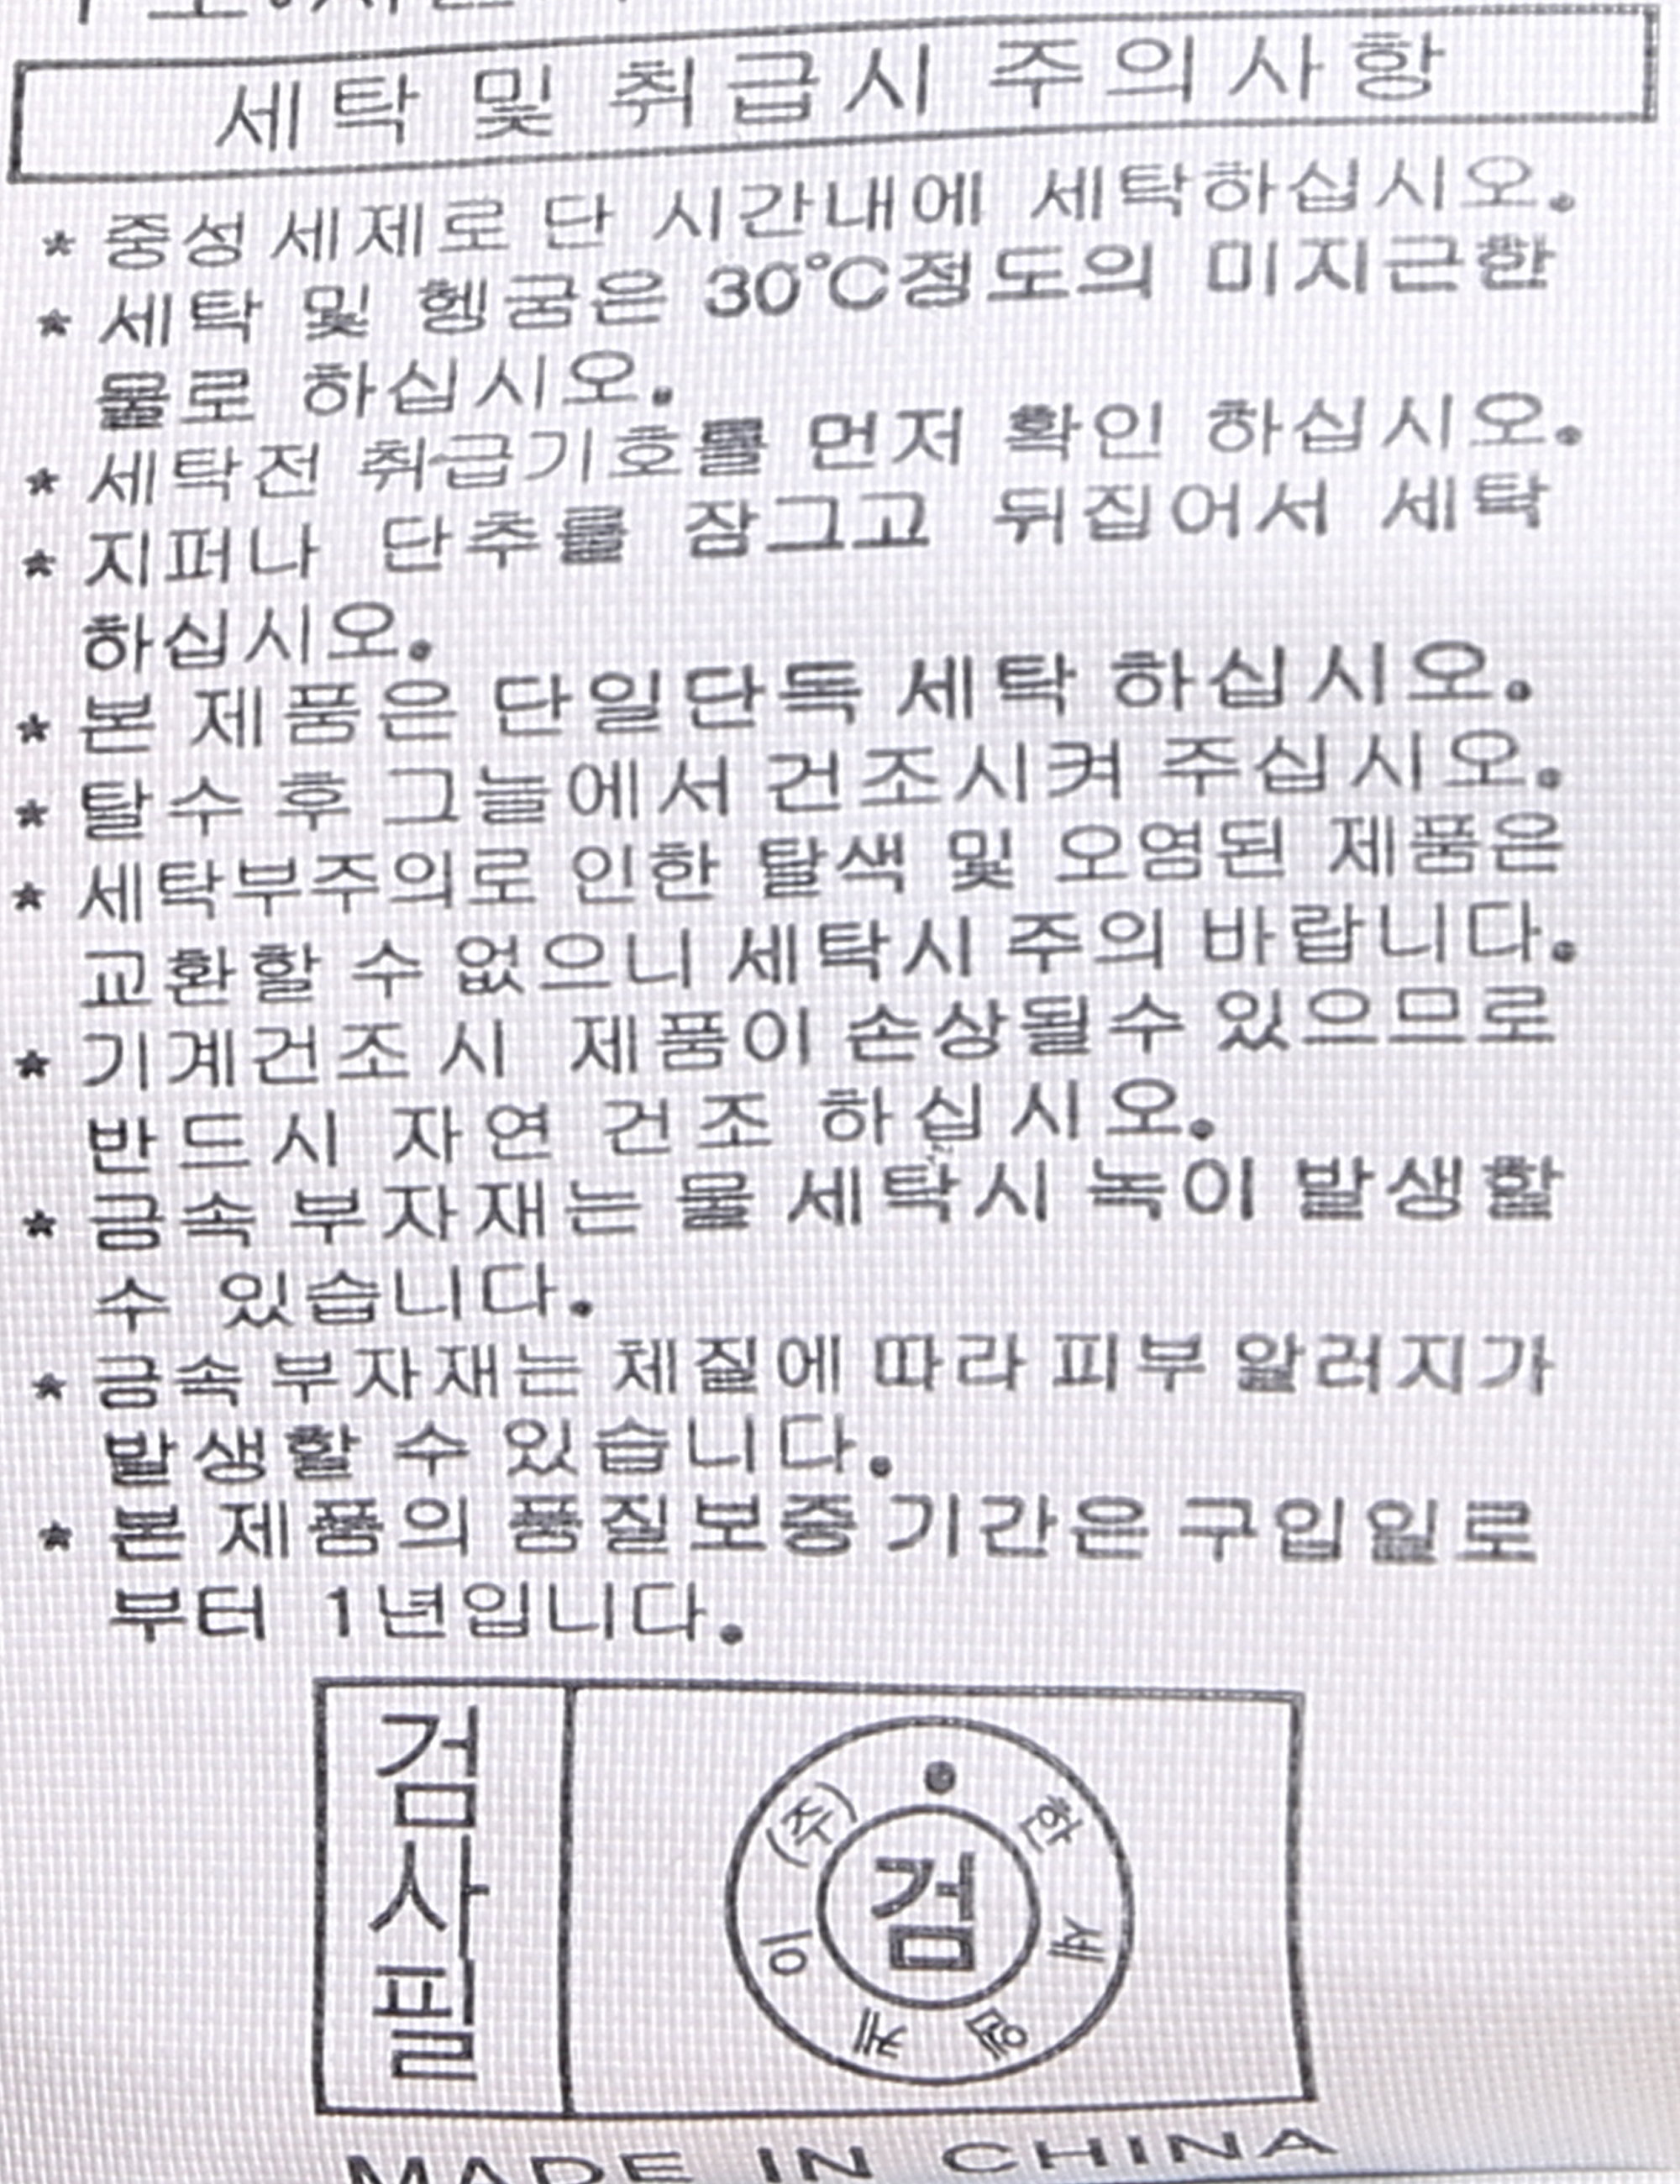 세탁 및 취급시 주의사항
* 중성세제로 단 시간내에 세탁하십시오.
* 세탁 및 헹굼은 30℃정도의 미지근한
물로 하십시오.
* 세탁전 취급기호를 먼저 확인 하십시오.
* 지퍼나 단추를 잠그고 뒤집어서 세탁
하십시오.
* 본 제품은 단일단독 세탁 하십시오.
* 탈수 후 그늘에서 건조시켜 주십시오.
* 세탁부주의로 인한 탈색 및 오염된 제품은
교환할 수 없으니 세탁시 주의 바랍니다.
* 기계건조시 제품이 손상될수 있으므로
반드시 자연 건조 하십시오.
* 금속 부자재는 물 세탁시 녹이 발생할
수 있습니다.
* 금속 부자재는 체질에 따라 피부 알러지가
발생할 수 있습니다.
* 본 제품의 품질보증기간은 구입일로
부터 1년입니다.
검사필
(주)한세엠케이
검
MADE IN CHINA